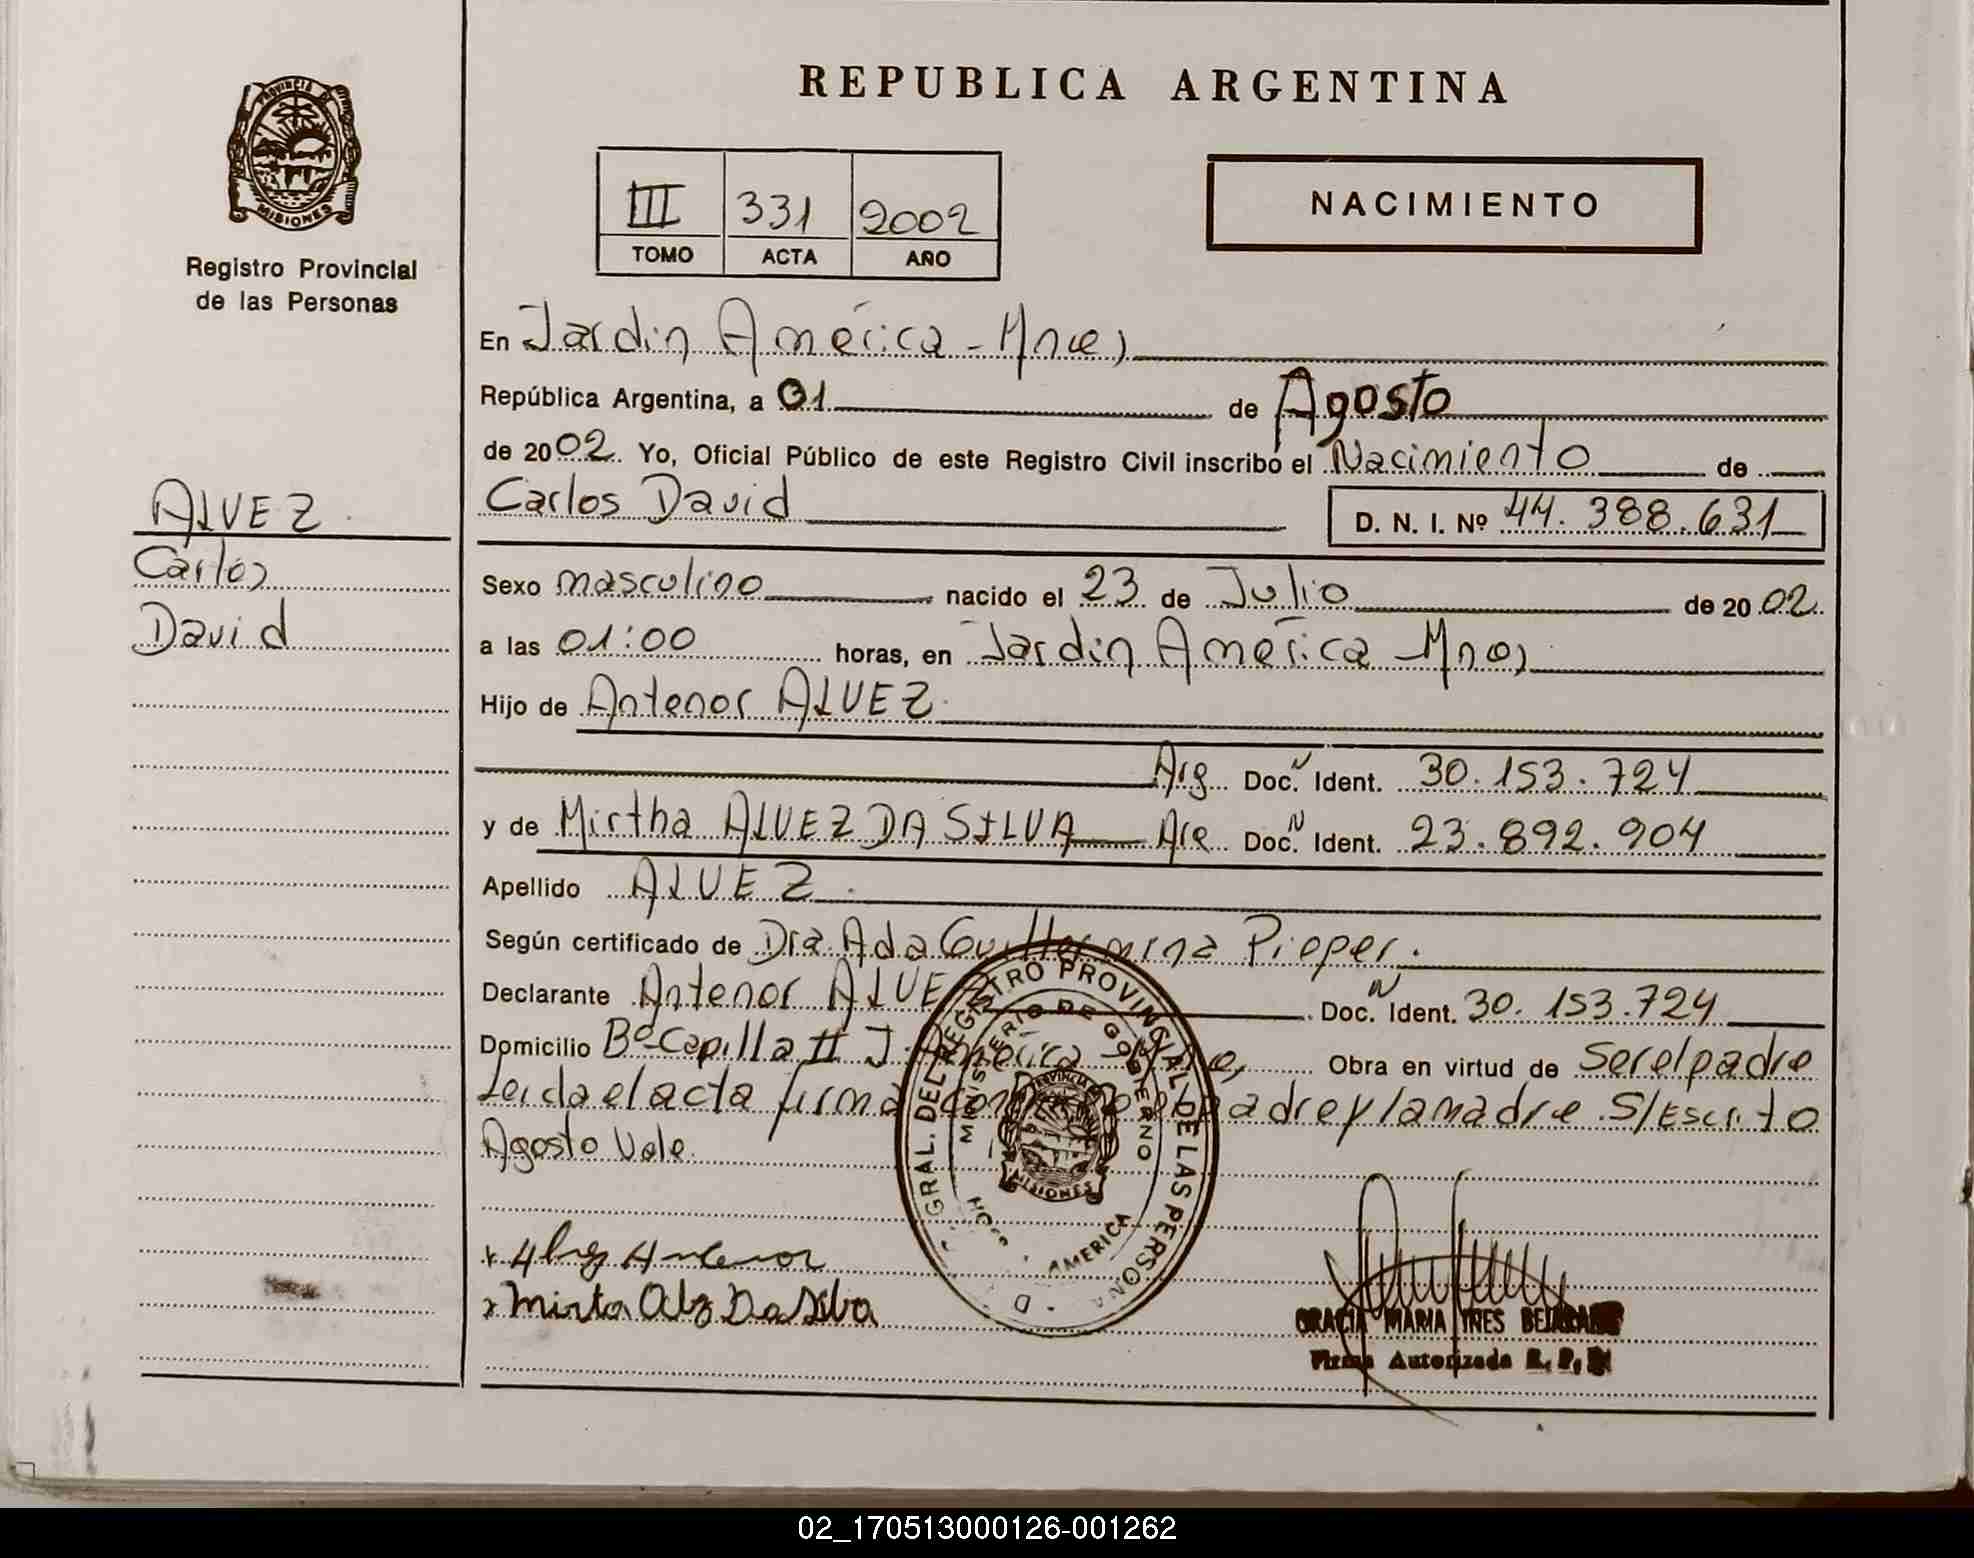 REPUBLICA ARGENTINA
PROVINCIA DE
MISIONES
Registro Provincial
de las Personas
III 331 2002
TOMO ACTA AÑO
NACIMIENTO
En Jardin América - Mnes)
República Argentina, a 01 de Agosto
de 2002. Yo, Oficial Público de este Registro Civil inscribo el Nacimiento de
Carlos David D. N. I. Nº 44.388.631
ALVEZ
Carlos
David
Sexo masculino nacido el 23 de Julio de 2002.
a las 01:00 horas, en Jardin América - Mnes)
Hijo de Antenor ALVEZ.
Arg. Doc. N Ident. 30.153.724
y de Mirtha ALVEZ DA SILVA Arg. Doc. N Ident. 23.892.904
Apellido ALVEZ.
Según certificado de Dra. Ada Guillermina Pieper.
Declarante Antenor ALVE Doc. N Ident. 30.153.724
Domicilio Bº Capilla II J. América Obra en virtud de Ser el padre
Leida el acta firma el padre y la madre S/Escrito
Agosto Vale.
Antenor
Mirta Da Silva
GRAL. DEL REGISTRO PROVINCIAL DE LAS PERSONA
MINISTERIO DE GOBIERNO
PROVINCIA
MISIONES
AMERICA
GRACIA MARIA INES
Firma Autorizada R. P.
02_170513000126-001262